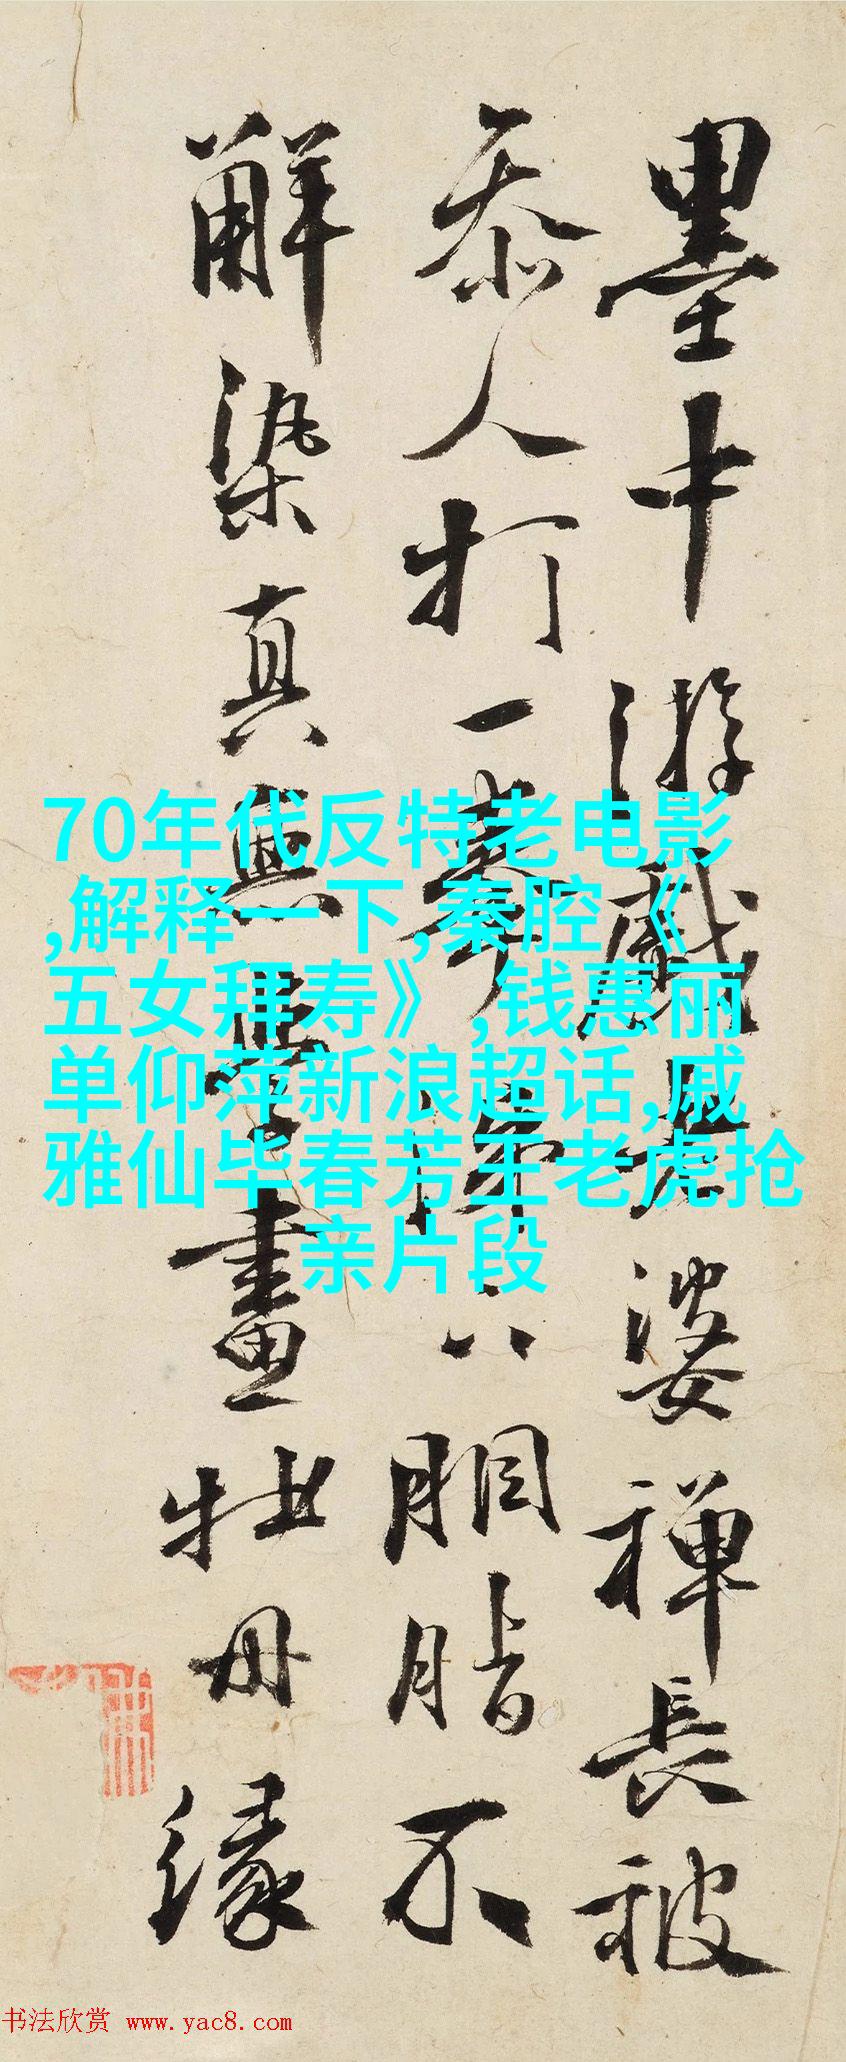 墨中游戲老婆禪長被
人打一拳胭脂不
解染真無學畫牡丹緣
70年代反特老电影
,解释一下,秦腔《
五女拜寿》,钱惠丽
单仰萍新浪超话,戚
雅仙毕春芳王老虎抢
亲片段
书法欣赏 www.yac8.com